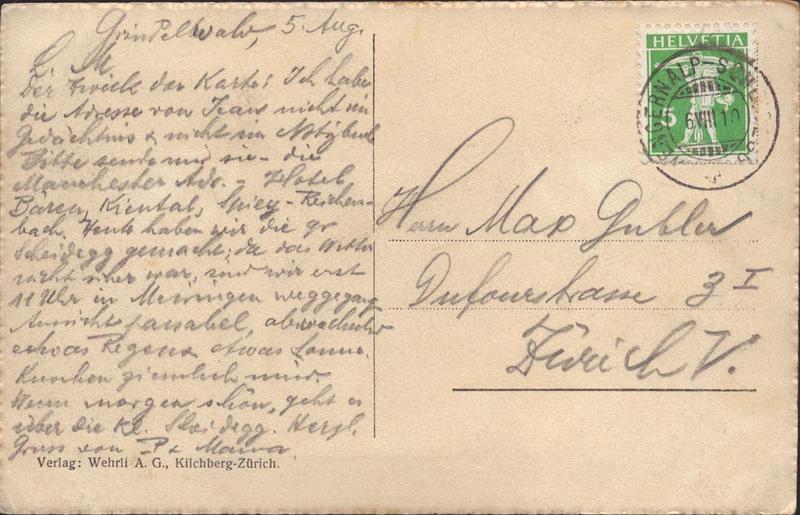 Grindelwald, 5. Aug.
L. M.
Der Zweck der Karte: Ich habe
die Adresse von Jeans nicht im
Gedächtnis & nicht im Notizbuch
Bitte sende mir sie - die
Manchester Adr. - Hotel
Bären, Kiental, Spiez - Reichen-
bach. Heute haben wir die gr
Scheidegg gemacht; da das Wetter
nicht sicher war, sind wir erst
11 Uhr in Meiringen weggegang
Aussicht passabel, abwechselnd
etwas Regen & etwas Sonne.
Knochen ziemlich müd.
Wenn morgen schön, geht es
über die Kl. Sheidegg. Herzl.
Gruss von P &
Verlag: Wehrli A. G., Kilchberg-Zürich.
HELVETIA
5
6 VIII 10
Herrn Max Gubler
Dufourstrasse 3 I
Zürich V.